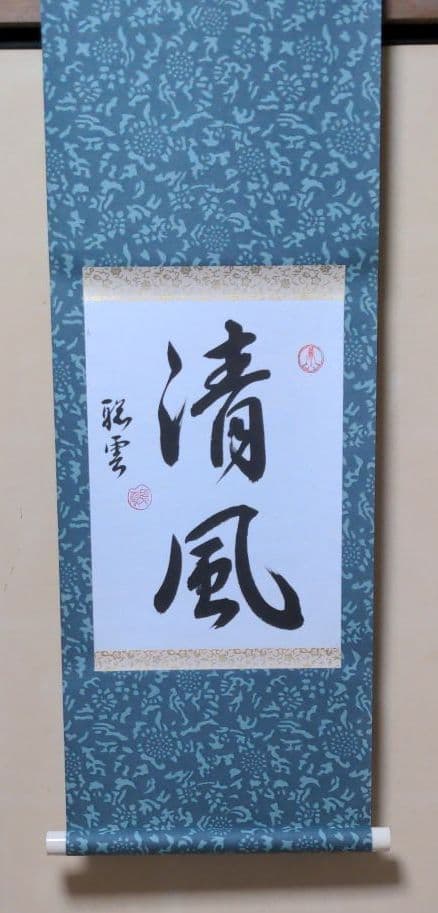 清風
聡雲